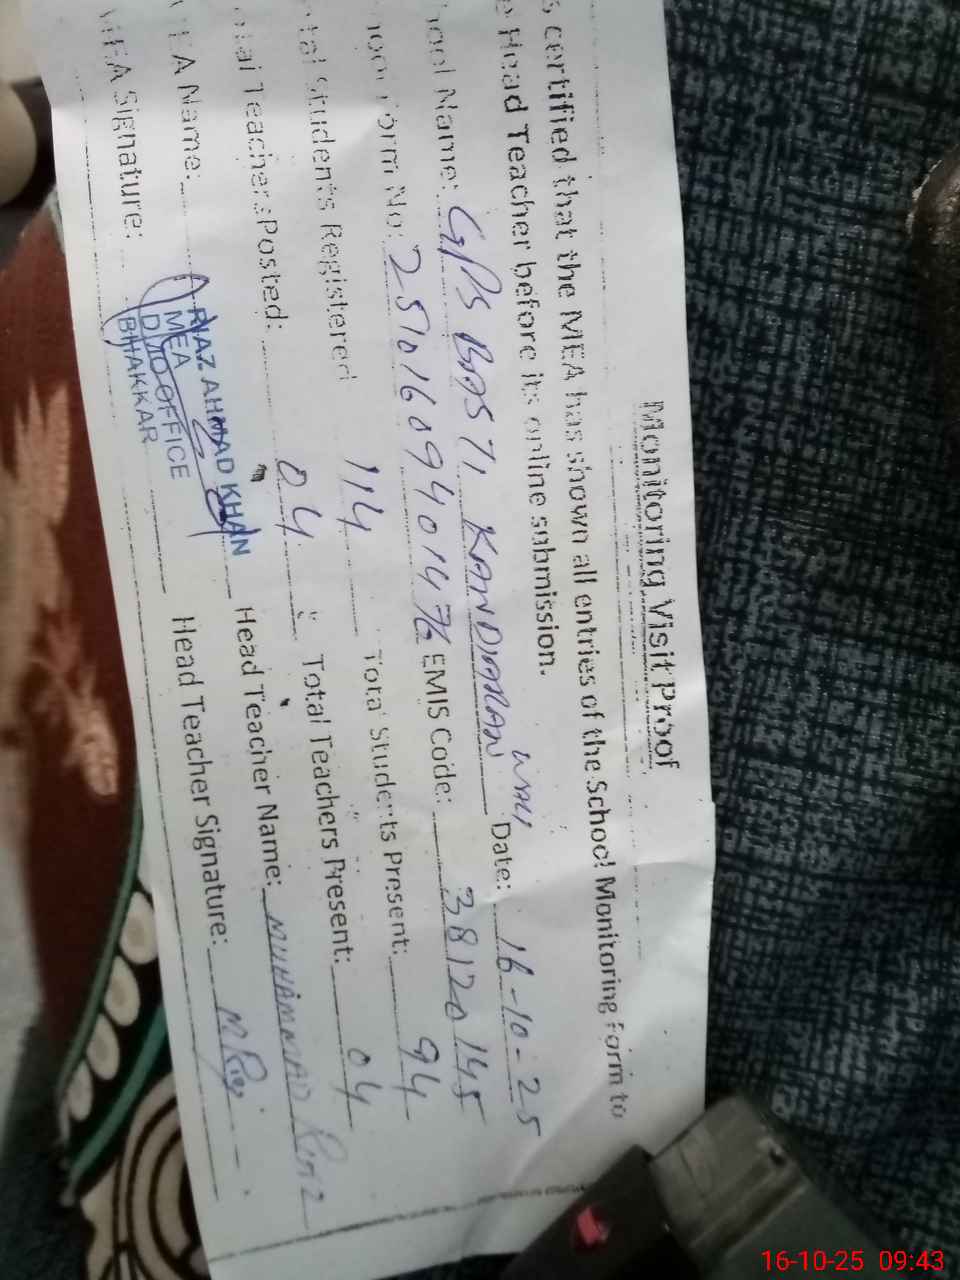 Monitoring Visit Proof
s certified that the MEA has shown all entries of the School Monitoring Form to
e Head Teacher before its online submission.
ool Name: GPS BASTI KANDIARAN WALI Date: 16-10-25
Form No: 25101609401476 EMIS Code: 38120145
tal Students Registered 114 Total Students Present: 94
tal Teachers Posted: 04 Total Teachers Present: 04
EA Name: RIAZ AHMAD KHAN Head Teacher Name: MUHAMMAD
MEA
DMO OFFICE
BHAKKAR
MEA Signature: Head Teacher Signature:
16-10-25 09:43